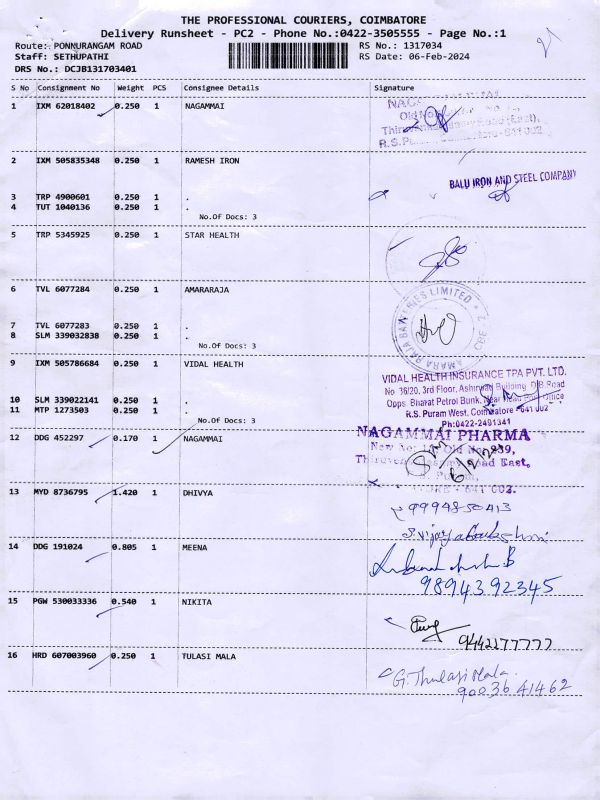 THE PROFESSIONAL COURIERS, COIMBATORE
Delivery Runsheet - PC2 - Phone No.:0422-3505555 - Page No.:1
Route: PONNURANGAM ROAD
RS No.: 1317034
Staff: SETHUPATHI
RS Date: 06-Feb-2024
DRS No.: DCJB131703401
S No Consignment No Weight PCS Consignee Details Signature
1 IXM 62018402 0.250 1 NAGAMMAI
2 IXM 505835348 0.250 1 RAMESH IRON
BALU IRON AND STEEL COMPANY
3 TRP 4900601 0.250 1 .
4 TUT 1040136 0.250 1 .
No.Of Docs: 3
5 TRP 5345925 0.250 1 STAR HEALTH
6 TVL 6077284 0.250 1 AMARARAJA
7 TVL 6077283 0.250 1 .
8 SLM 339032838 0.250 1 .
No.Of Docs: 3
9 IXM 505786684 0.250 1 VIDAL HEALTH
VIDAL HEALTH INSURANCE TPA PVT. LTD.
No. 36/20, 3rd Floor, Ashirwad Building, D.B.Road
Opps. Bharat Petrol Bunk, Near Head Post Office
R.S. Puram West, Coimbatore - 641 002
Ph:0422-2491341
10 SLM 339022141 0.250 1 .
11 MTP 1273503 0.250 1 .
No.Of Docs: 3
12 DDG 452297 0.170 1 NAGAMMAI
NAGAMMAI PHARMA
Road East,
6/2/24
13 MYD 8736795 1.420 1 DHIVYA
9994850413
14 DDG 191024 0.805 1 MEENA
9894392345
15 PGW 530033336 0.540 1 NIKITA
9442177777
16 HRD 607003960 0.250 1 TULASI MALA
G. Thulasi Mala.
90036 41462